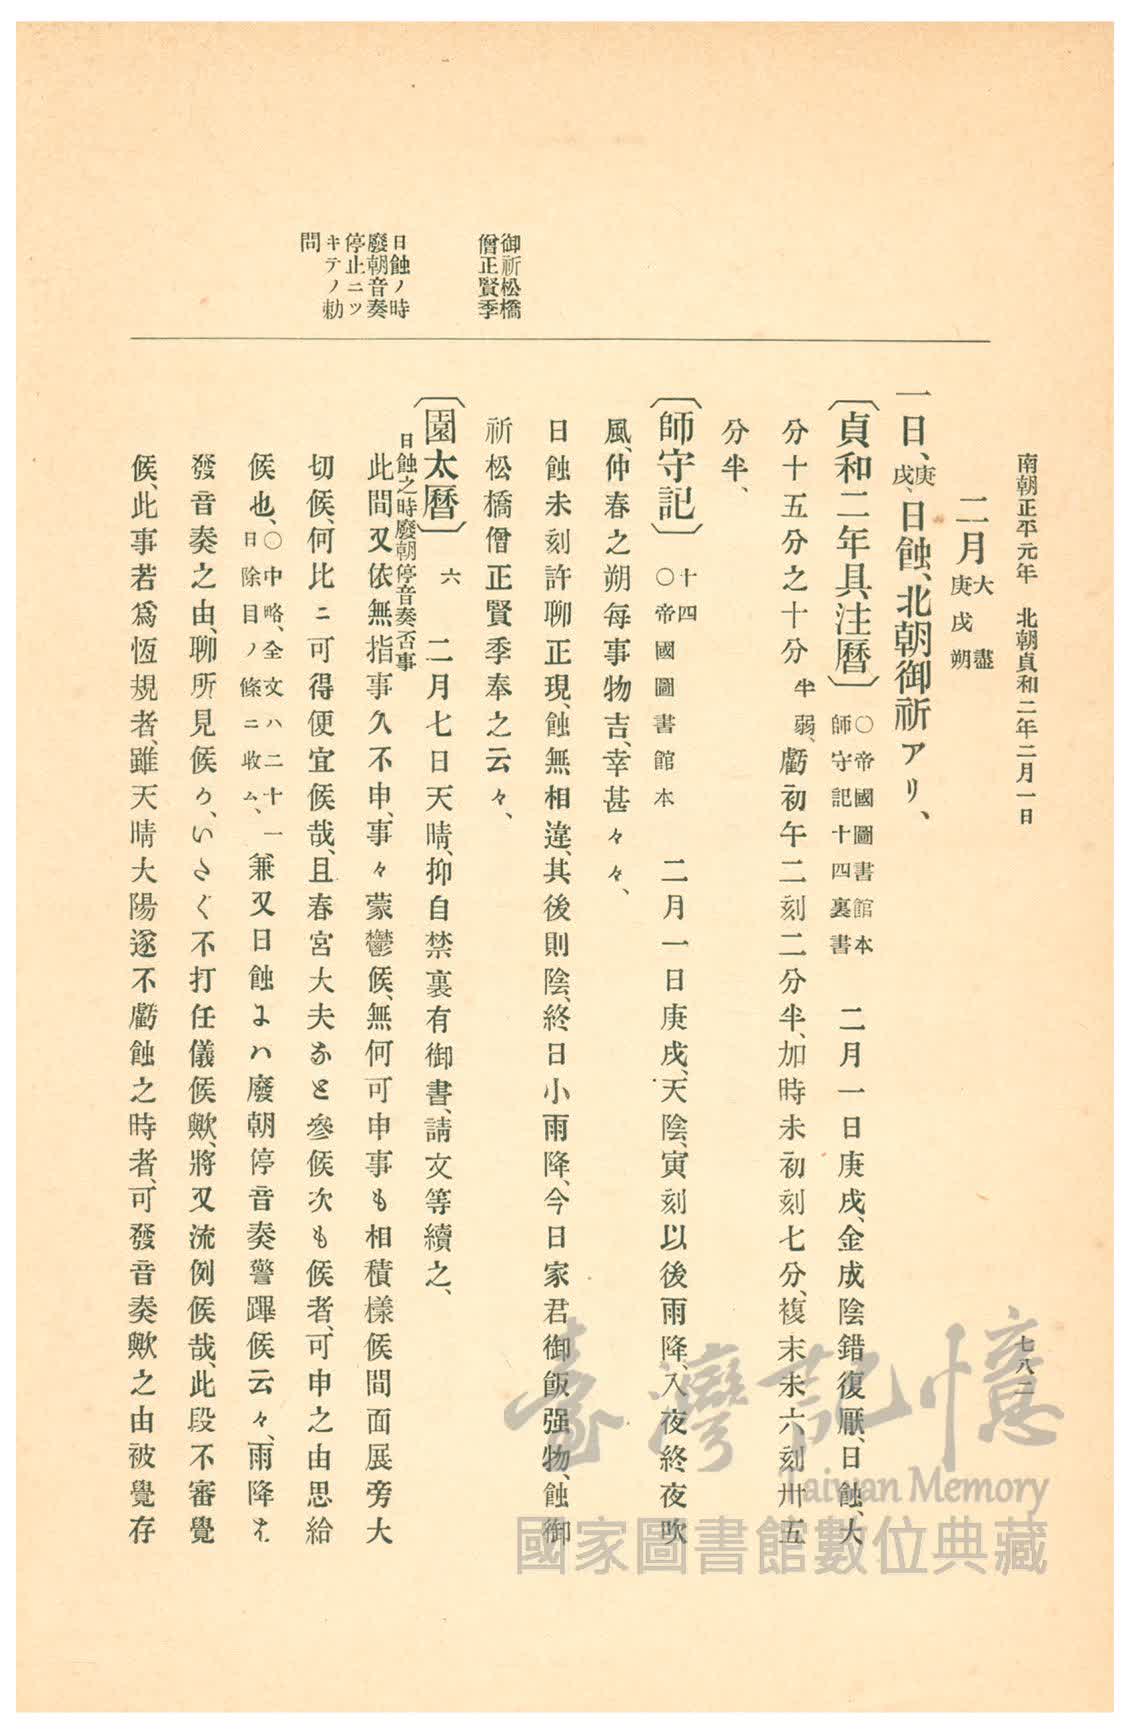 南朝正平元年　北朝貞和二年二月一日
七八二
二月大盡
庚戌朔
一日、庚戌、日蝕、北朝御祈アリ、
〔貞和二年具注曆〕○帝國圖書館本
師守記十四裏書　二月一日庚戌、金成陰錯復厭、日蝕、大
分十五分之十分半弱、虧初午二刻二分半、加時未初刻七分、複末未六刻卅五
分半、
〔師守記〕十四
○帝國圖書館本　二月一日庚戌、天陰、寅刻以後雨降、入夜終夜吹
風、仲春之朔每事物吉、幸甚々々、
日蝕未刻許聊正現、蝕無相違、其後則陰、終日小雨降、今日家君御飯强物、蝕御
祈松橋僧正賢季奉之云々、
〔園太曆〕六　二月七日天晴、抑自禁裏有御書、請文等續之、
日蝕之時廢朝停音奏否事
此間又依無指事久不申、事々蒙鬱候、無何可申事も相積樣候間面展旁大
切候、何比ニ可得便宜候哉、且春宮大夫なと參候次も候者、可申之由思給
候也、○中略、全文ハ二十一
日除目ノ條ニ收ム、兼又日蝕よハ廢朝停音奏警蹕候云々、雨降を
發音奏之由、聊所見候の、いさく不打任儀候歟、將又流例候哉、此段不審覺
候、此事若爲恆規者、雖天晴大陽遂不虧蝕之時者、可發音奏歟之由被覺存
御祈松橋
僧正賢季
日蝕ノ時
廢朝音奏
停止ニツ
キテノ勅
問
臺灣記憶
Taiwan Memory
國家圖書館數位典藏